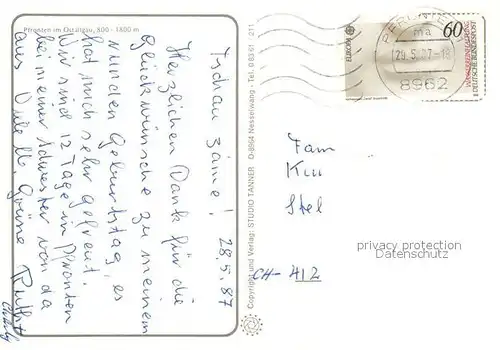 Pfronten im Ostallgäu, 800 - 1800 m
Tschau zäme! 28.5.87
Herzlichen Dank für die
Glückwünsche zu meinem
runden Geburtstag, es
hat mich sehr gefreut.
Wir sind 12 Tage in Pfronten
bei meiner Schwester von da
aus Viele lb. Grüsse
Copyright und Verlag: STUDIO TANNER D-8964 Nesselwang · Tel. 0 83 61 / 211
EUROPA
60
DEUTSCHE BUNDESPOST
PFRONTEN
ma
29.5.87-18
8962
Fam
CH-412
privacy protection
Datenschutz